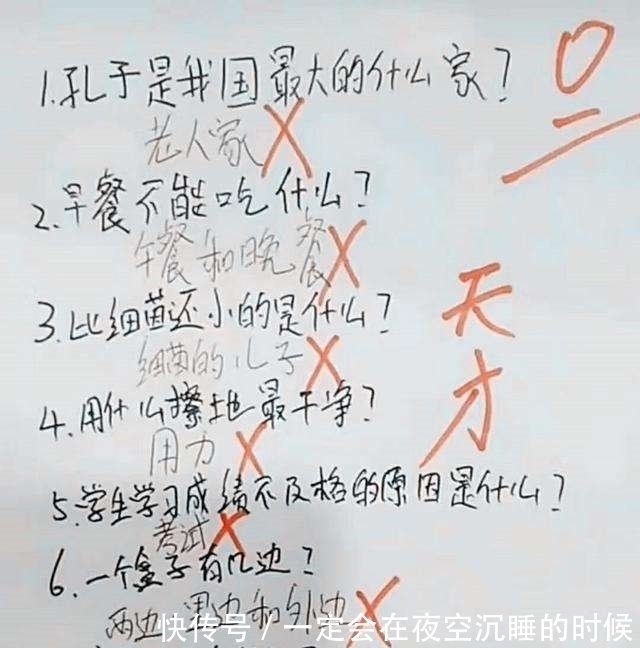 1.孔子是我国最大的什么家?
老人家
0
2.早餐不能吃什么?
午餐和晚餐
3.比细菌还小的是什么?
细菌的儿子
天才
4.用什么擦地最干净?
用力
5.学生学习成绩不及格的原因是什么?
考试
6.一个盒子有几边?
两边 里边和外边
快传号/一定会在夜空沉睡的时候